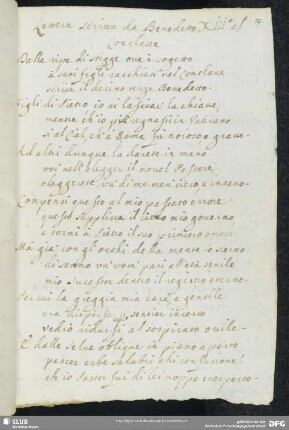 Lettera scritta da Benedetto XIII.º al
Conclave
Dalle ripe di stigge ove è sogetto
à suoi figli racchiusi nel Conclave
scrive il decimo terzo Benedetto.
figli di Pietro io vi lasciai la chiave
mentre ch'io più segnassi in Vaticano
e grave
Ad altri dunque la darete in mano
voi nell'elegger il novel Pastore
eleggerete un di me men cieco e insano.
Compensi questo al mio passato errore
questo supplisca il mio governo
e torni à Pietro il suo primiero onore
Ma già con gl'occhi della mente io scerno
di senno un uom' pari all'età senile
mio successor dentro il registro eterno.
Per cui la greggia mia cara e gentile
era dispersa per sentier incerto
vedrò ridursi al sospirato ovile.
E dalle selve oblique in piano aperto
pascer erbe salubri
ch'io Pastor fui di lei troppo inesperto.
SLUB
DFG